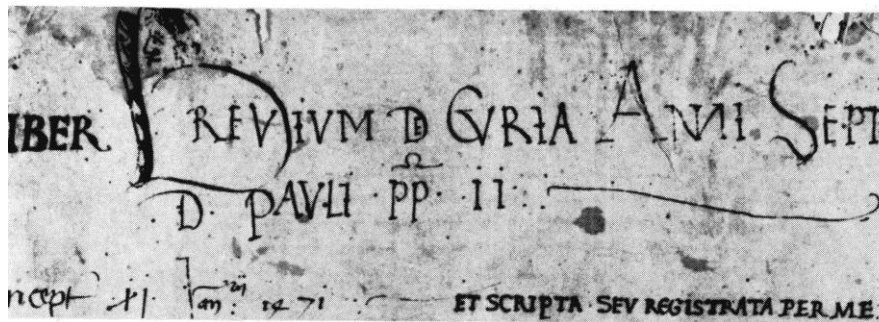 IBER BREVIVM DE CVRIA ANNI SEPT
D. PAVLI PP II
ncept XI 1471 ET SCRIPTA SEV REGISTRATA PER ME